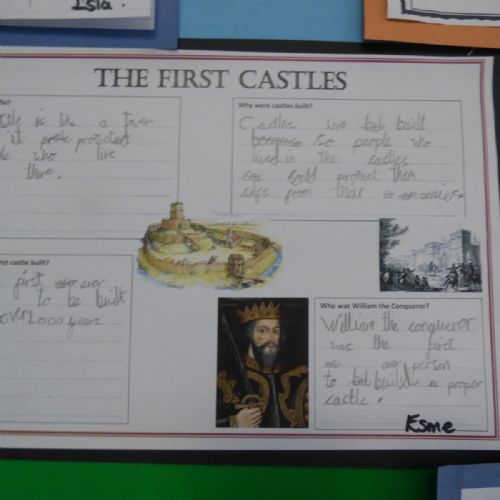 Isla.
THE FIRST CASTLES
is like a tower
it protect
who live
there.
Why were castles built?
Castles were built
because so people who
lived in the castles
could protect them
selfs from their
rst castle built?
first ever
to be built
over 1,000 years
Who was William the Conqueror?
William the conqueror
was the first
ever person
to build a proper
castle.
Esme